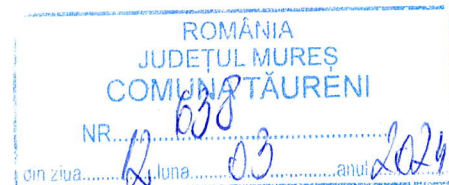 ROMÂNIA
JUDEȚUL MUREȘ
COMUNA TĂURENI
NR......638......
din ziua......12....luna......03......anul 2024